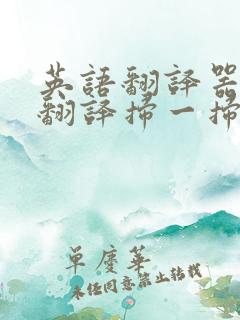 英語翻譯器
翻譯掃一掃
單廈華
未经同意禁止转载